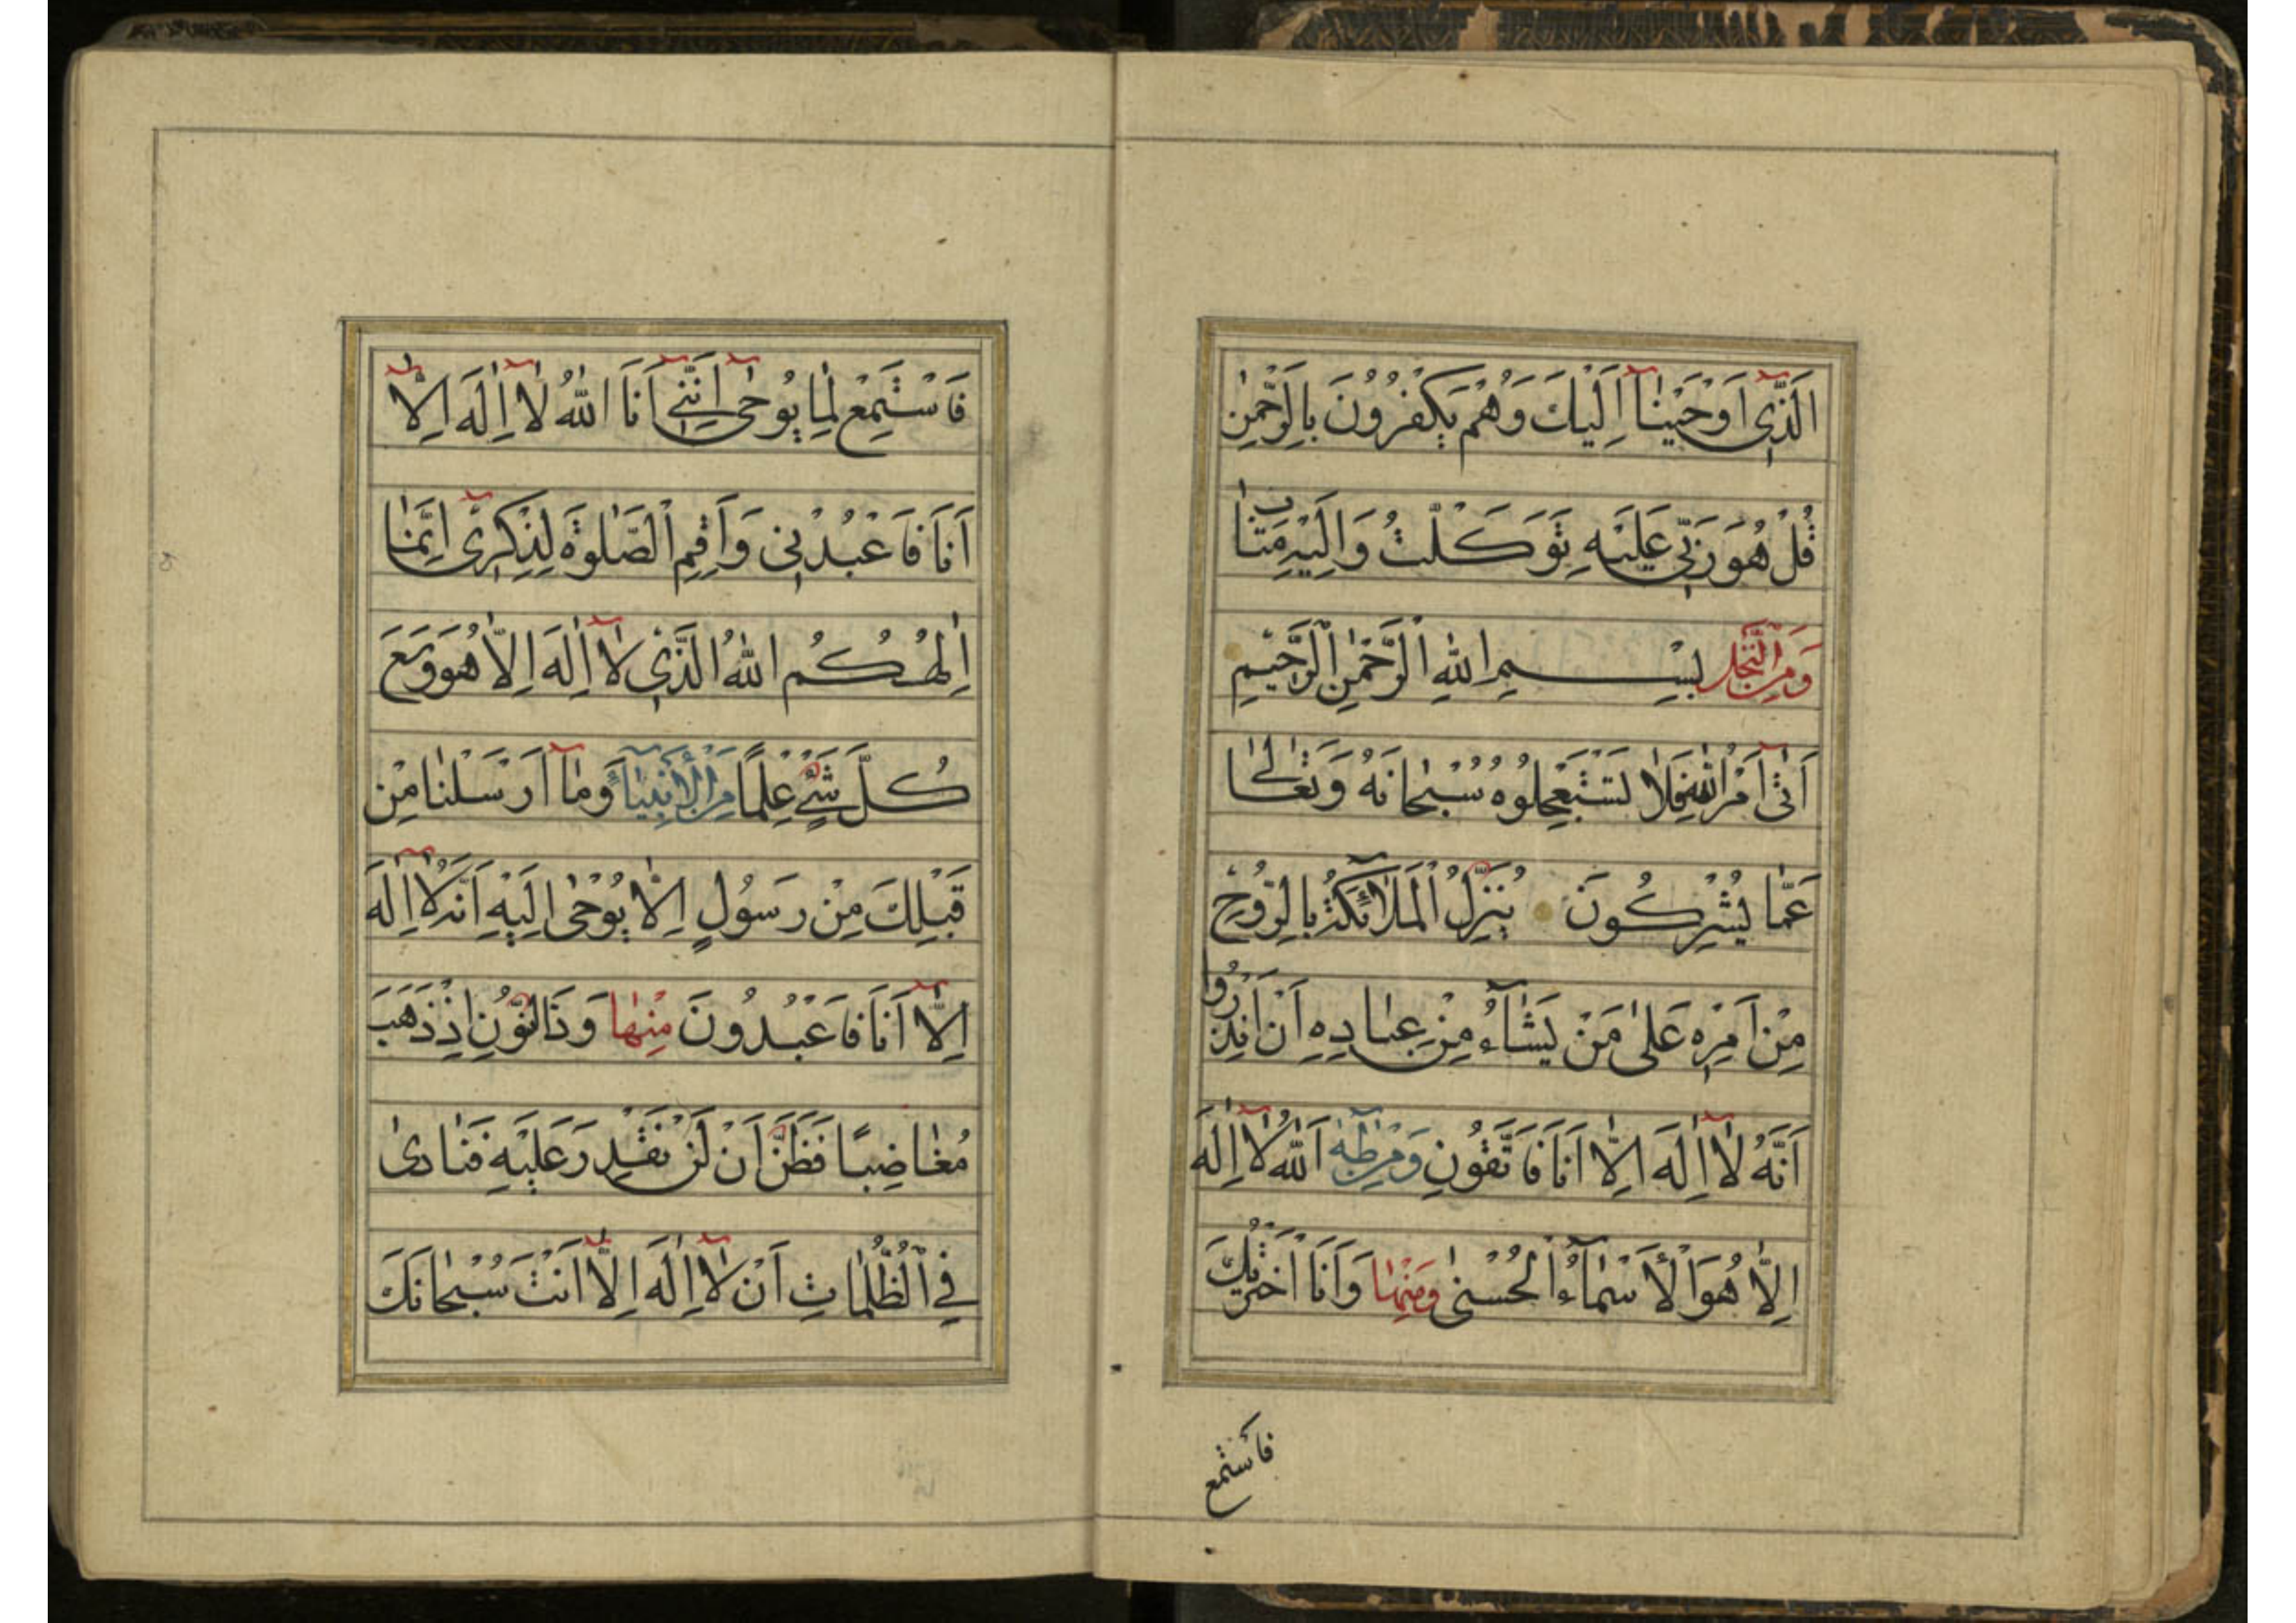 اَلَّذِي اَوْحَيْنٰا اِلَيْكَ وَهُمْ يَكْفُرُونَ بِالرَّحْمٰنِ
قُلْ هُوَ رَبِّي عَلَيْهِ تَوَكَّلْتُ وَاِلَيْهِ مَتٰابِ
وَمِنَ النَّحْلِ بِسْمِ اللّٰهِ الرَّحْمٰنِ الرَّحِيمِ
اَتٰى اَمْرُ اللّٰهِ فَلٰا تَسْتَعْجِلُوهُ سُبْحٰانَهُ وَتَعٰالىٰ
عَمّٰا يُشْرِكُونَ يُنَزِّلُ الْمَلٰائِكَةَ بِالرُّوحِ
مِنْ اَمْرِهِ عَلىٰ مَنْ يَشٰاءُ مِنْ عِبٰادِهِ اَنْ اَنْذِرُوا
اَنَّهُ لٰا اِلٰهَ اِلّٰا اَنَا فَاتَّقُونِ وَمِنْ طٰهٰ اَللّٰهُ لٰا اِلٰهَ
اِلّٰا هُوَ الْأَسْمٰاءُ الْحُسْنىٰ وَمِنْهٰا وَاَنَا اخْتَرْتُكَ
فَاسْتَمِعْ
فَاسْتَمِعْ لِمٰا يُوحىٰ اِنَّنِي اَنَا اللّٰهُ لٰا اِلٰهَ اِلّٰا
اَنَا فَاعْبُدْنِي وَاَقِمِ الصَّلٰوةَ لِذِكْرِي اِنَّمٰا
اِلٰهُكُمُ اللّٰهُ الَّذِي لٰا اِلٰهَ اِلّٰا هُوَ وَسِعَ
كُلَّ شَيْءٍ عِلْمًا مِنَ الْأَنْبِيٰاءِ وَمٰا اَرْسَلْنٰا مِنْ
قَبْلِكَ مِنْ رَسُولٍ اِلّٰا يُوْحٰى اِلَيْهِ اَنَّهُ لٰا اِلٰهَ
اِلّٰا اَنَا فَاعْبُدُونَ مِنْهٰا وَذَا النُّونِ اِذْ ذَهَبَ
مُغٰاضِبًا فَظَنَّ اَنْ لَنْ نَقْدِرَ عَلَيْهِ فَنٰادىٰ
فِي الظُّلُمٰاتِ اَنْ لٰا اِلٰهَ اِلّٰا اَنْتَ سُبْحٰانَكَ